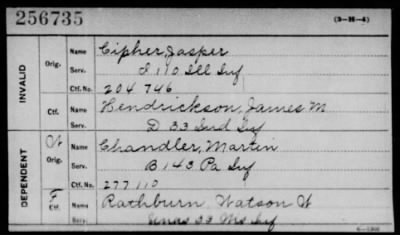 256735 (3-H-4)
INVALID
Orig. Name Cipher, Jasper
Serv. I 110 Ill Inf
Ctf. No. 204 746
Ctf. Name Hendrickson, James M
D 33 Ind Inf
DEPENDENT
W Orig. Name Chandler, Martin
Serv. B 143 Pa Inf
Ctf. No. 277 110
F Ctf. Name Rathburn, Watson W
33 Inf